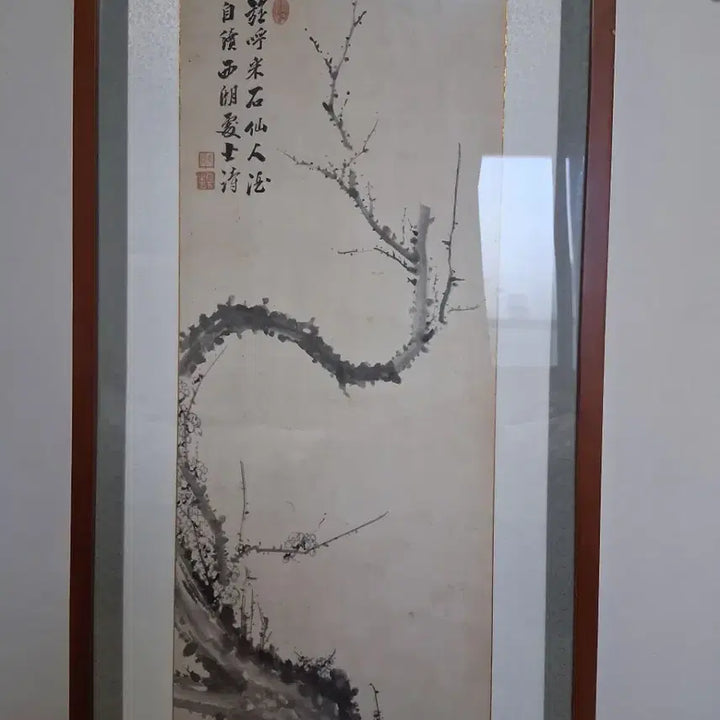 呼采石仙人酒
自讀西湖處士詩